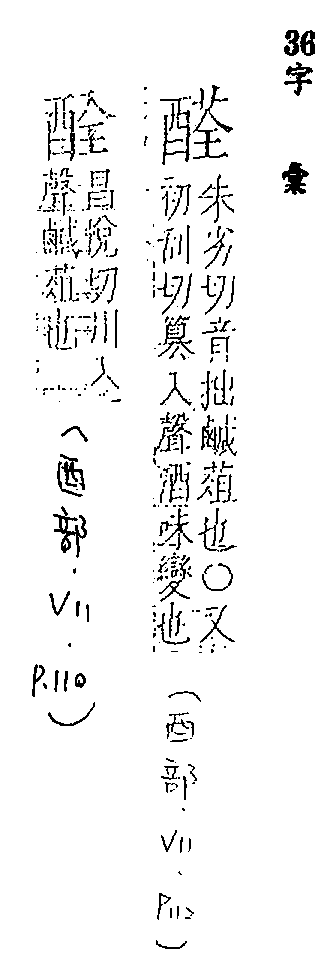 36字 彙
醛 朱劣切音拙鹹葅也○又
初刮切篡入聲酒味變也
(酉部.VII.P112)
昌悅切川入
聲鹹葅也
(酉部.VII.P.110)